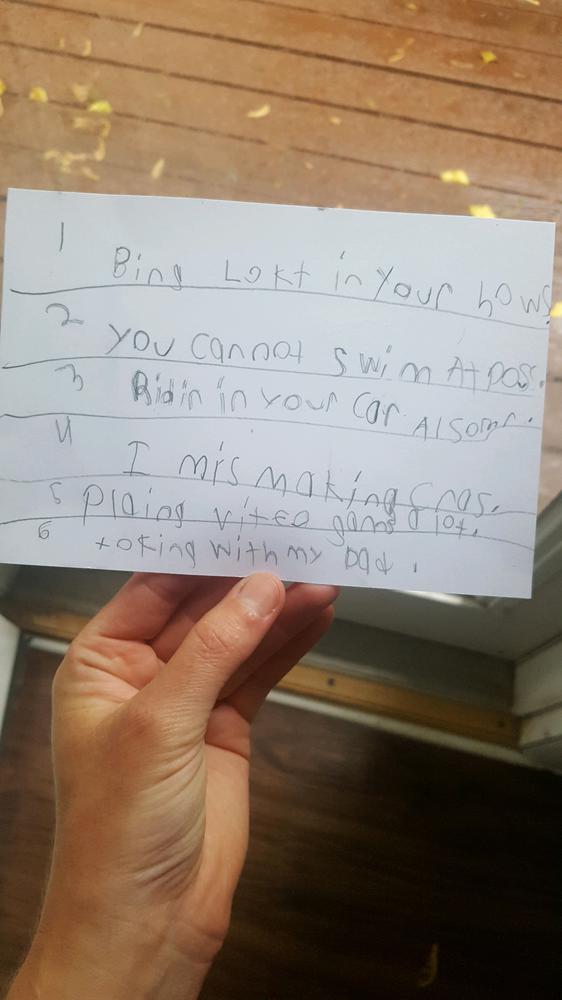 1 Bing Lokt in Your hows.
2 you cannot swim At pos.
3 Ridin in your car. Alsomr.
4 I mis making frds.
5 Plaing viteo games a lot.
6 toking with my Dad.